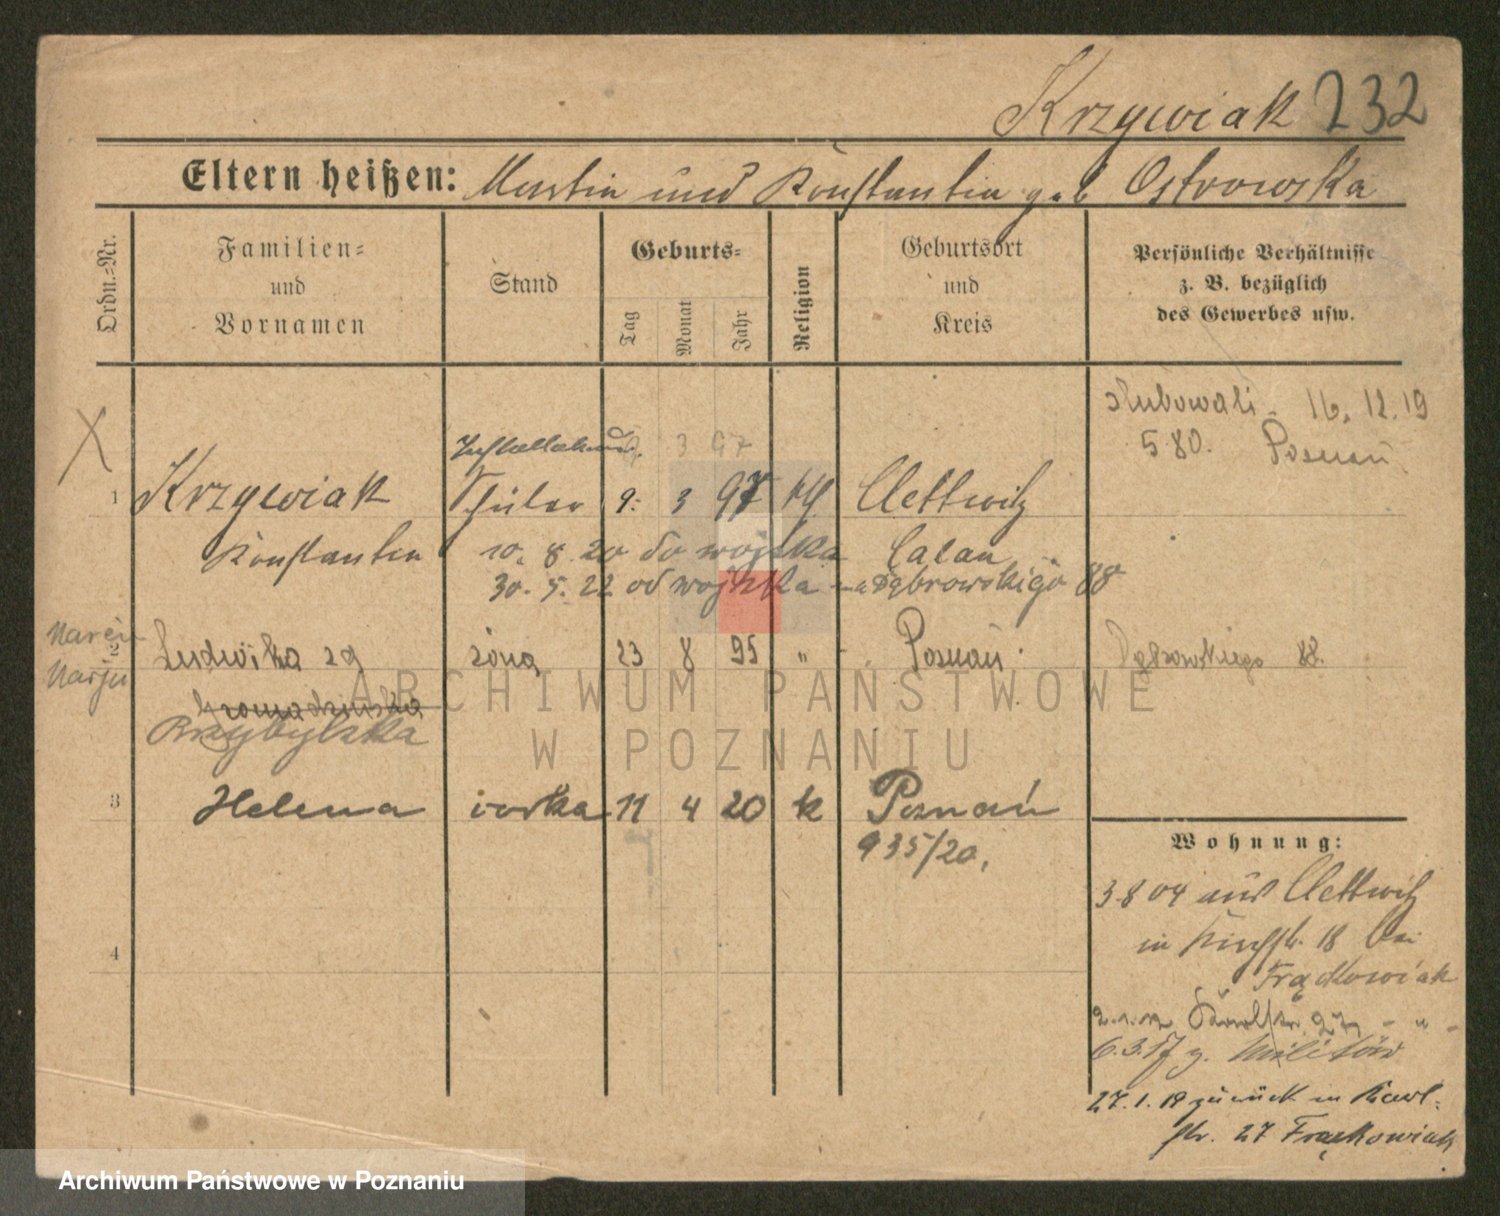 Krzywiak 232
Eltern heißen: Martin und Konstantin geb Ostrowska
Ordn.-Nr.
Familien-
und
Vornamen
Stand
Geburts-
Tag
Monat
Jahr
Religion
Geburtsort
und
Kreis
Persönliche Verhältnisse
z. B. bezüglich
des Gewerbes usw.
ślubowali 16.12.19
580. Poznań
3 97
1 Krzywiak Schüler 9. 3 97 kth
Konstantin 10.8.20 do wojska
30.5.22 od wojska na Dąbrowskiego 88
Ludwika zd żona 23 8 95 " Poznań Dąbrowskiego 88.
Gromadzińska
Przybylska
3 Helena córka 11 4 20 k Poznań
935/20.
4
Wohnung:
3.8 04 aus
in 18 bei
Frąckowiak
2.1.12 27 - " -
6.3.17 z. Militär
27.1.19 zurück in Karl-
str. 27 Frąckowiak
ARCHIWUM PAŃSTWOWE
W POZNANIU
Archiwum Państwowe w Poznaniu